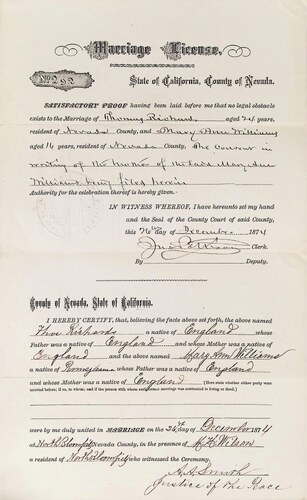 Marriage License.
No. 282
State of California, County of Nevada.
SATISFACTORY PROOF having been laid before me that no legal obstacle
exists to the Marriage of Thomas Richards aged 24 years,
resident of Nevada County, and Mary Ann Williams
aged 16 years, resident of Nevada County, the consent in
writing of the mother of the said Mary Ann
Williams being filed herein
Authority for the celebration thereof is hereby given.
IN WITNESS WHEREOF, I have hereunto set my hand
and the Seal of the County Court of said County,
this day of December 1874
Clerk.
By Deputy.
County of Nevada, State of California.
I HEREBY CERTIFY, that, believing the facts above set forth, the above named
Thos Richards a native of England whose
Father was a native of England and whose Mother was a native of
England and the above named Mary Ann Williams
a native of Pennsylvania whose Father was a native of England
and whose Mother was a native of England
were by me duly united in MARRIAGE on the 24th day of December 1874
at North Bloomfield Nevada County, in the presence of Wilson
a resident of North Bloomfield who witnessed the Ceremony.
Smith
Justice of the Peace